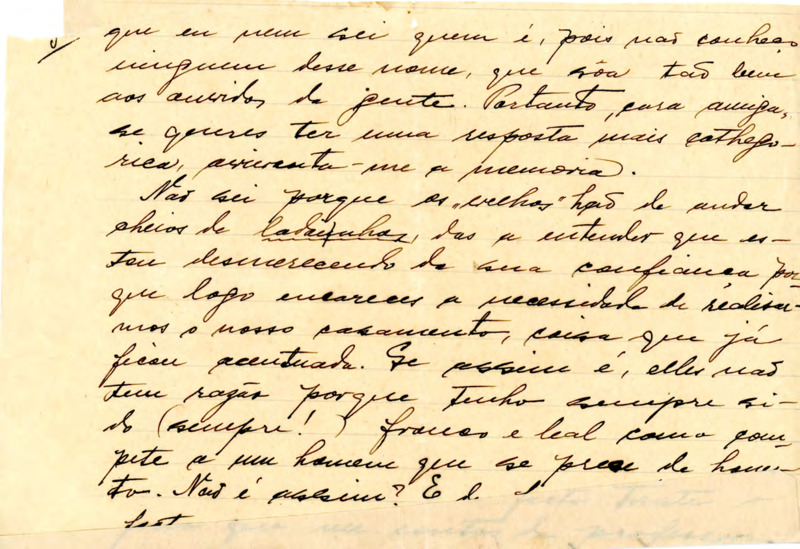 que eu nem sei quem é, pois não conheço
ninguem desse nome, que sôa tão bem
aos ouvidos da gente. Portanto, cara amiga,
se queres ter uma resposta mais cathego-
rica, avivanta-me a memoria.
Não sei porque os "velhos" hão de andar
cheios de ladainhas, das a entender que es-
tou desmerecendo da sua confiança por-
que logo encareces a necessidade de realisar-
mos o nosso casamento, coisa que já
ficou acentuada. Se assim é, elles não
tem razão porque tenho sempre si-
do (sempre!) franco e leal como com-
pete a um homem que se prese de hones-
to. Não é assim? E d.